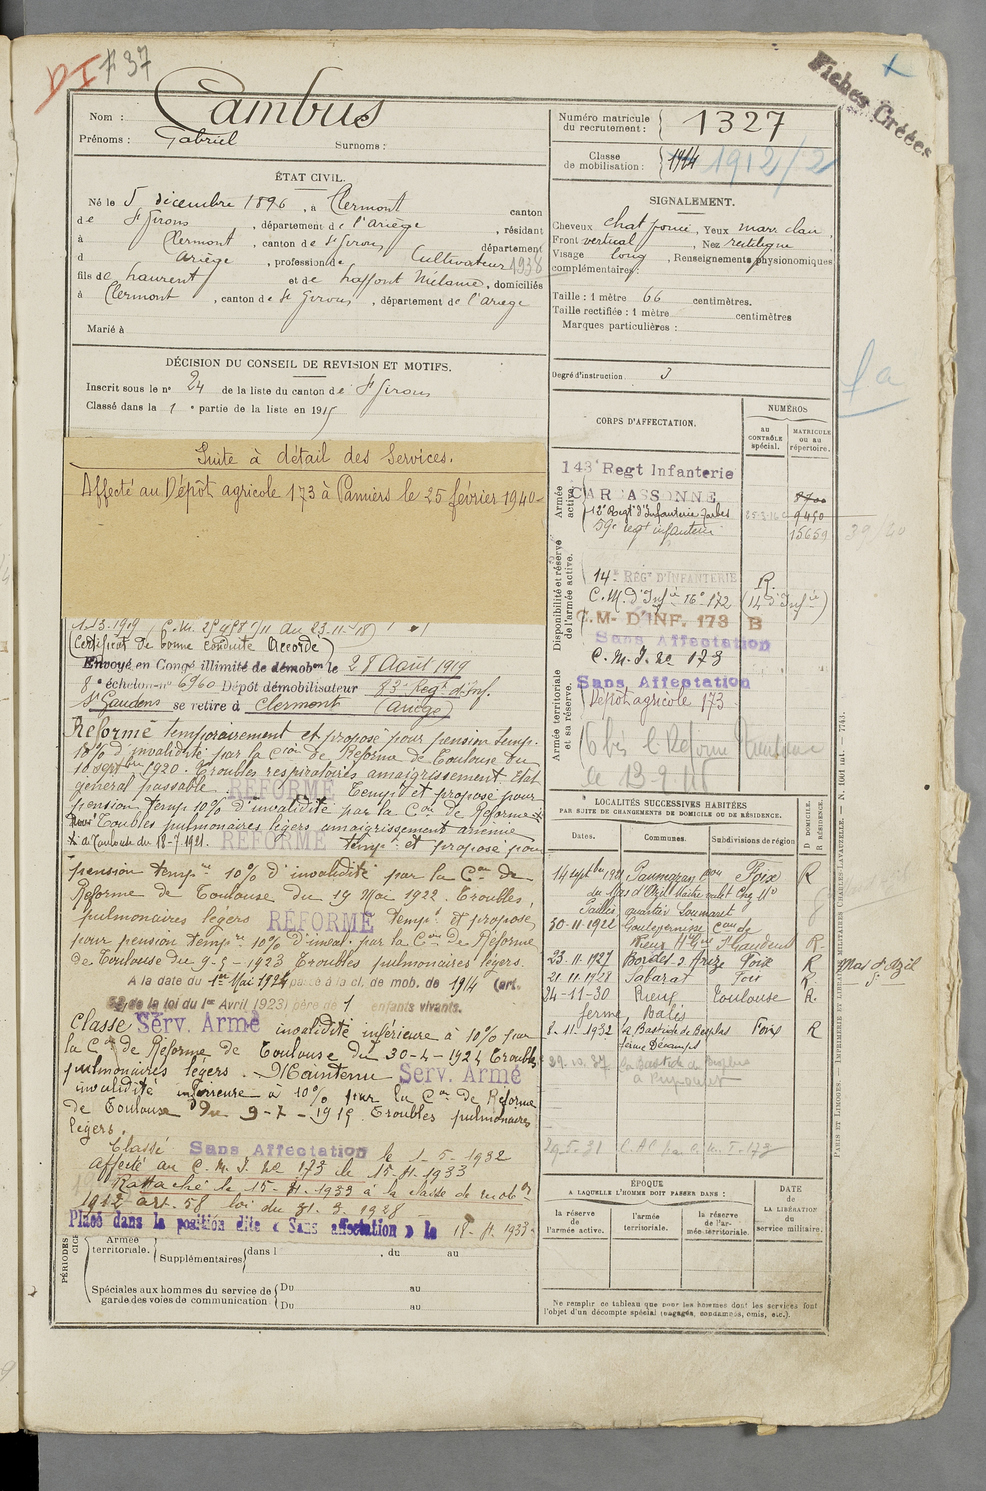 DI
F 37
Fiches Créées
Nom : Cambus
Prénoms : Gabriel
Surnoms :
Numéro matricule du recrutement : 1327
Classe de mobilisation : 1914 1912/2
ÉTAT CIVIL.
Né le 5 décembre 1896, à Clermont canton
de St Girons, département de l'Ariège, résidant
à Clermont, canton de St Girons département
d Ariège, profession de Cultivateur 1938
fils de Laurent et de Laffont Mélanie, domiciliés
à Clermont, canton de St Girons, département de l'Ariège
Marié à
SIGNALEMENT.
Cheveux chat foncé, Yeux marr. clair,
Front vertical, Nez rectiligne
Visage long, Renseignements physionomiques
complémentaires :
Taille : 1 mètre 66 centimètres.
Taille rectifiée : 1 mètre centimètres
Marques particulières :
Degré d'instruction 3
DÉCISION DU CONSEIL DE REVISION ET MOTIFS.
Inscrit sous le n° 24 de la liste du canton de St Girons
Classé dans la 1e partie de la liste en 1915
Suite à détail des Services.
Affecté au Dépôt agricole 173 à Pamiers le 25 février 1940
(Certificat de bonne conduite Accordé)
Envoyé en Congé illimité de démobon le 28 Août 1919
8e échelon n° 6960 Dépôt démobilisateur 83e Regt d'Inf.
St Gaudens se retire à Clermont (Ariège)
Réformé temporairement et proposé pour pension temp.
10% d'invalidité par la Con de Réforme de Toulouse du
10 septbre 1920. Troubles respiratoires amaigrissement. Etat
général passable. REFORMÉ Tempt et proposé pour
pension temp 10% d'invalidité par la Con de Réforme
Troubles pulmonaires légers amaigrissement anémie
de Toulouse du 18-7-1921. REFORMÉ tempt et proposé pour
pension tempre 10% d'invalidité par la Con de
Réforme de Toulouse du 19 Mai 1922. Troubles
pulmonaires légers REFORMÉ tempt et proposé
pour pension tempre 10% d'inval. par la Con de Réforme
de Toulouse du 9-5-1923 Troubles pulmonaires légers.
A la date du 1er Mai 1924 passé à la cl. de mob. de 1914 (art.
58 de la loi du 1er Avril 1923) père de 1 enfants vivants.
Classé Serv. Armé invalidité inférieure à 10% par
la Con de Réforme de Toulouse du 30-4-1924 Troubles
pulmonaires légers. Maintenu Serv. Armé
invalidité inférieure à 10% par la Con de Réforme
de Toulouse du 9-7-1915 Troubles pulmonaires
légers.
Classé Sans Affectation le 1-5-1932
affecté au C. M. I. de 173 le 15-11-1933
Rattaché le 15-11-1933 à la classe de mobon
1912 art. 58 loi du 31.3.1928
Placé dans la position dite « Sans affectation » le 18-11-1933
PÉRIODES
Armée territoriale.
Supplémentaires
dans l , du au
Spéciales aux hommes du service de garde des voies de communication
Du au
Du au
CORPS D'AFFECTATION.
NUMÉROS
au CONTRÔLE spécial.
MATRICULE OU AU répertoire.
Armée active.
143e Regt Infanterie
CARCASSONNE
12e Regt d'Infanterie Tarbes 25-3-16 9450
59e regt infanterie 15659
39/40
Disponibilité et réserve de l'armée active.
14e REGt D'INFANTERIE R.
C. M. d'Infie 16e 172 (14 d'Infie)
C.M- D'INF. 173 B
Sans Affectation
C. M. I. de 173
Armée territoriale et sa réserve.
Sans Affectation
Dépot agricole 173
LOCALITÉS SUCCESSIVES HABITÉES
PAR SUITE DE CHANGEMENTS DE DOMICILE OU DE RÉSIDENCE.
Dates. Communes. Subdivisions de région D. DOMICILE. R. RÉSIDENCE.
14 septbre 1921 Foix R
du Mas d'Azil
quartier
30-11-1922 St Gaudens R.
23.11.1927 Bordes s Arize Foix R
Mas d'Azil
21.11.1928 Sabarat Foix R.
24-11-30 Rieux Toulouse R.
ferme Balès
8-11-1932 La Bastide de Besplas Foix R
ferme Décamps
29.10.37 La Bastide de Besplas
ÉPOQUE
A LAQUELLE L'HOMME DOIT PASSER DANS :
la réserve de l'armée active.
l'armée territoriale.
la réserve de l'armée territoriale.
DATE de LA LIBÉRATION du service militaire.
Ne remplir ce tableau que pour les hommes dont les services font
l'objet d'un décompte spécial (engagés, condamnés, omis, etc.).
PARIS ET LIMOGES. — IMPRIMERIE ET LIBRAIRIE MILITAIRES CHARLES-LAVAUZELLE.